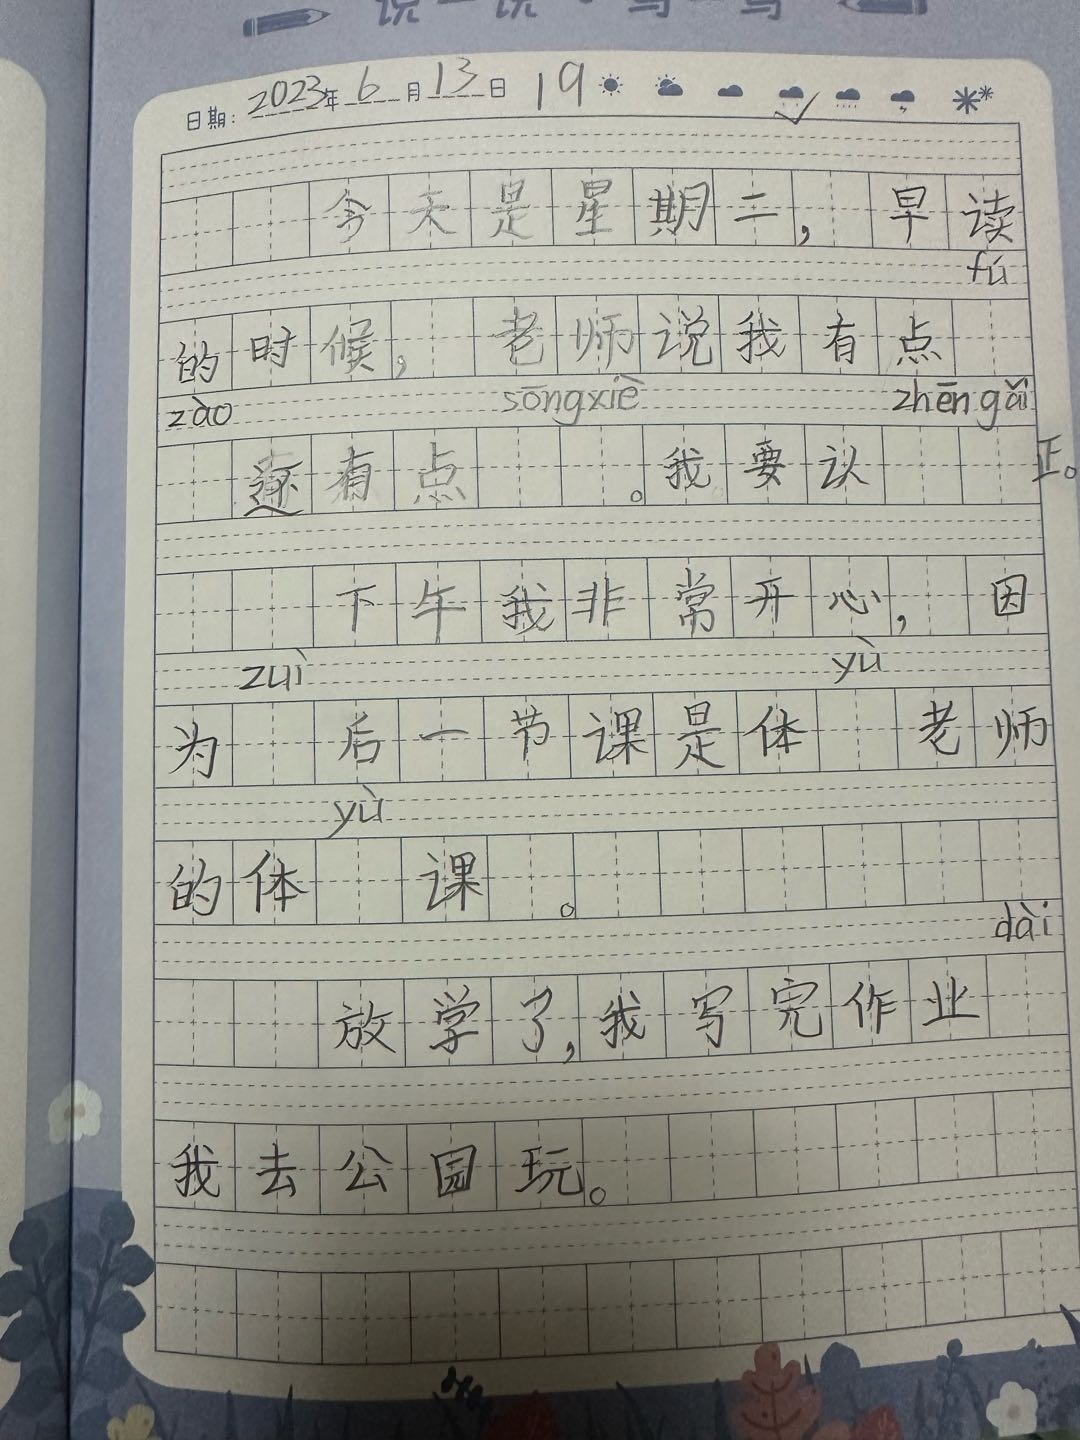 说一说·写一写
日期：2023年6月13日 19
今天是星期二，早读
fú
的时候，老师说我有点
zào sōngxiè zhēn gǎi
还有点。我要认正。
下午我非常开心，因
zuì yù
为后一节课是体老师
yù
的体课。
dài
放学了，我写完作业
我去公园玩。